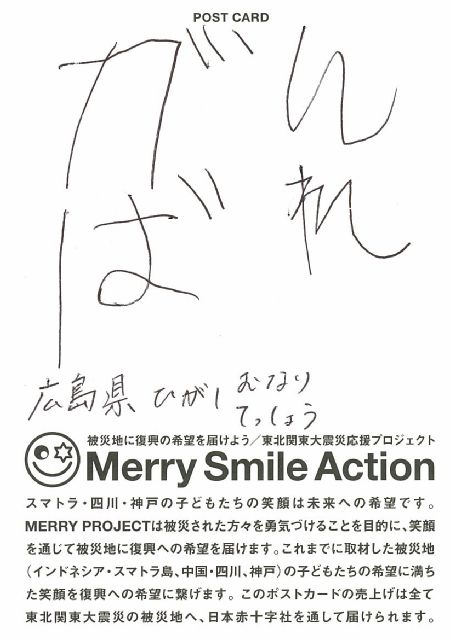 POST CARD
がん
ばれ
広島県 ひがし むなり
てっしょう
被災地に復興の希望を届けよう／東北関東大震災応援プロジェクト
Merry Smile Action
スマトラ・四川・神戸の子どもたちの笑顔は未来への希望です。
MERRY PROJECTは被災された方々を勇気づけることを目的に、笑顔
を通じて被災地に復興への希望を届けます。これまでに取材した被災地
（インドネシア・スマトラ島、中国・四川、神戸）の子どもたちの希望に満ち
た笑顔を復興への希望に繋げます。このポストカードの売上げは全て
東北関東大震災の被災地へ、日本赤十字社を通して届けられます。